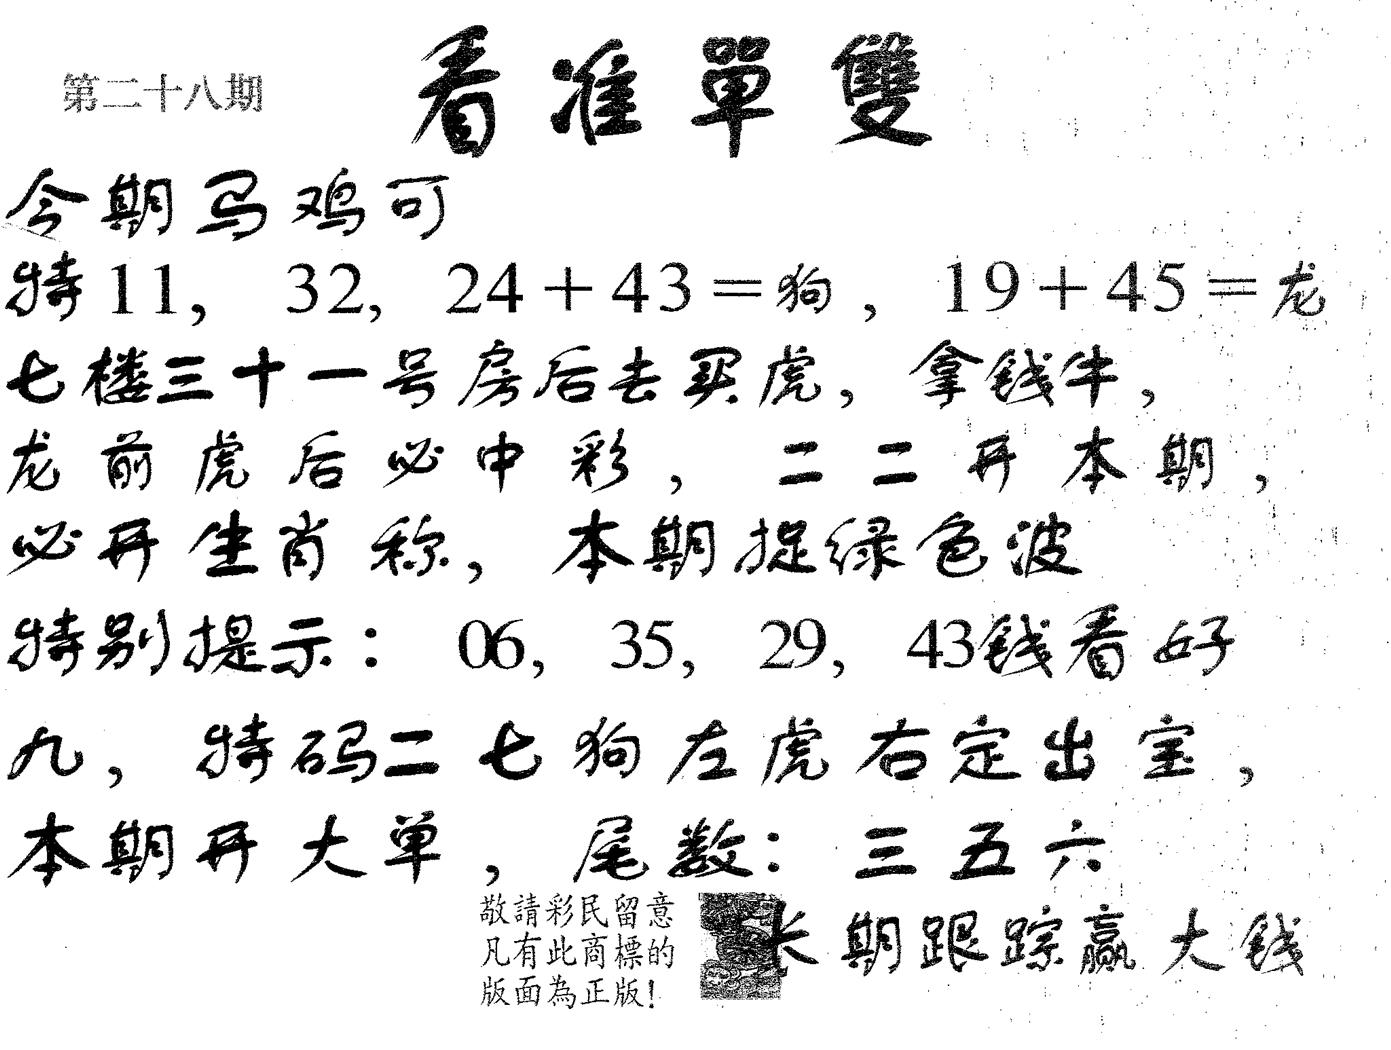 第二十八期
看准單雙
今期马鸡可
特11, 32, 24+43=狗, 19+45=龙
七楼三十一号房后去买虎,拿钱牛,
龙前虎后必中彩,二二开本期,
必开生肖称,本期捉绿色波
特别提示: 06, 35, 29, 43钱看好
九,特码二七狗左虎右定出宝,
本期开大单,尾数:三五六
敬請彩民留意
凡有此商標的
版面為正版!
长期跟踪赢大钱